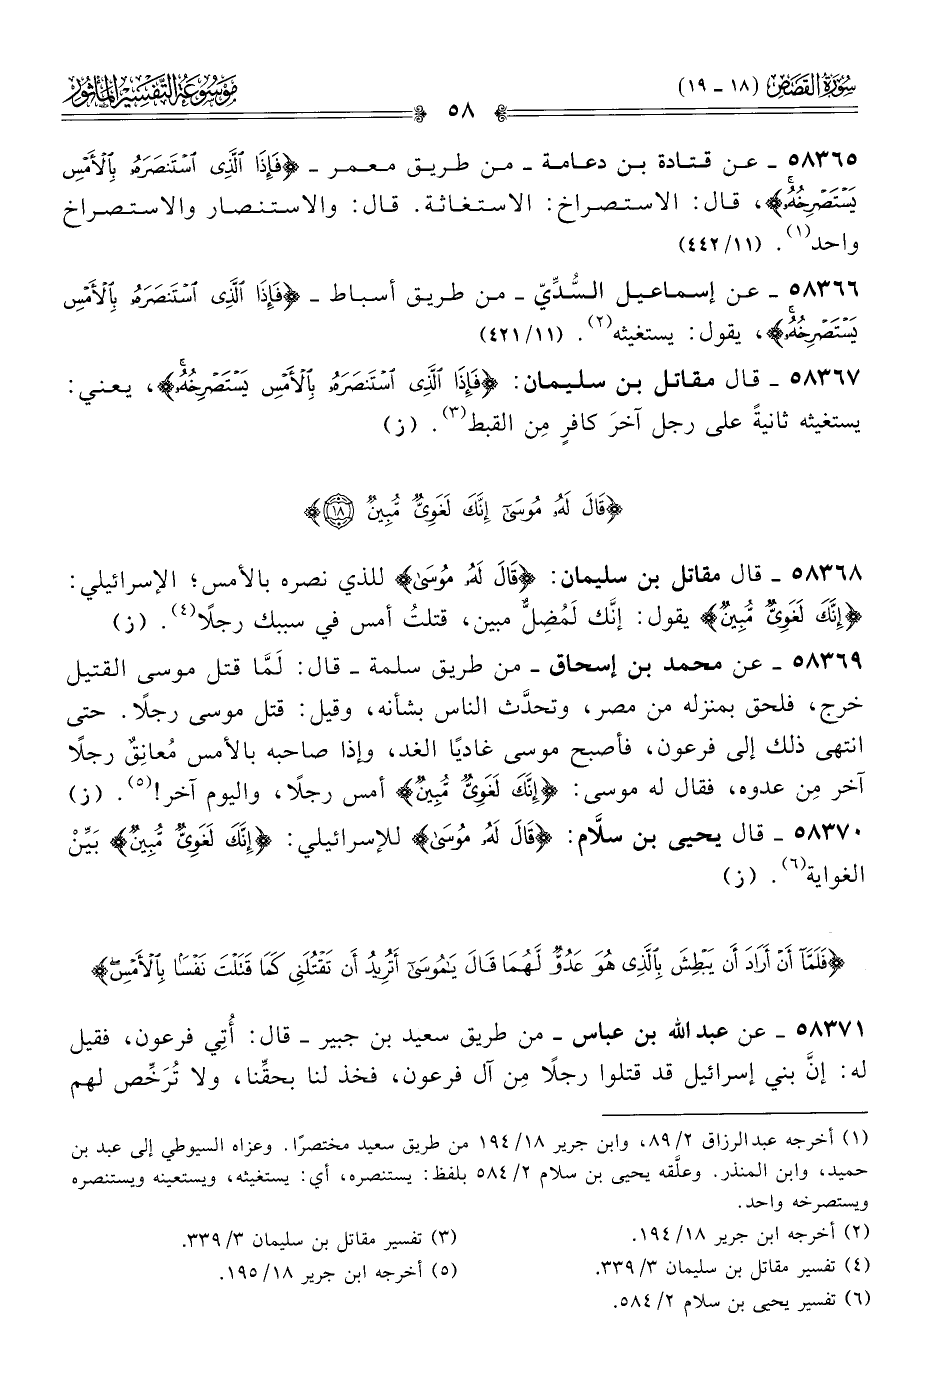 سورة القصص (١٨ - ١٩)
٥٨
موسوعة التفسير المأثور
٥٨٣٦٥ - عن قتادة بن دعامة - من طريق معمر - ﴿فَإِذَا ٱلَّذِى ٱسْتَنصَرَهُۥ بِٱلْأَمْسِ
يَسْتَصْرِخُهُۥ﴾، قال: الاستصراخ: الاستغاثة. قال: والاستنصار والاستصراخ
واحد(١). (١١/ ٤٤٢)
٥٨٣٦٦ - عن إسماعيل السُّدِّيّ - من طريق أسباط - ﴿فَإِذَا ٱلَّذِى ٱسْتَنصَرَهُۥ بِٱلْأَمْسِ
يَسْتَصْرِخُهُۥ﴾، يقول: يستغيثه(٢). (١١/ ٤٢١)
٥٨٣٦٧ - قال مقاتل بن سليمان: ﴿فَإِذَا ٱلَّذِى ٱسْتَنصَرَهُۥ بِٱلْأَمْسِ يَسْتَصْرِخُهُۥ﴾، يعني:
يستغيثه ثانيةً على رجل آخرَ كافرٍ مِن القبط(٣). (ز)
﴿قَالَ لَهُۥ مُوسَىٰٓ إِنَّكَ لَغَوِىٌّ مُّبِينٌ ١٨﴾
٥٨٣٦٨ - قال مقاتل بن سليمان: ﴿قَالَ لَهُۥ مُوسَىٰ﴾ للذي نصره بالأمس؛ الإسرائيلي:
﴿إِنَّكَ لَغَوِىٌّ مُّبِينٌ﴾ يقول: إنَّك لَمُضِلٌّ مبين، قتلتُ أمس في سببك رجلًا(٤). (ز)
٥٨٣٦٩ - عن محمد بن إسحاق - من طريق سلمة - قال: لَمَّا قتل موسى القتيل
خرج، فلحق بمنزله من مصر، وتحدَّث الناس بشأنه، وقيل: قتل موسى رجلًا. حتى
انتهى ذلك إلى فرعون، فأصبح موسى غاديًا الغد، وإذا صاحبه بالأمس مُعانِقٌ رجلًا
آخر مِن عدوه، فقال له موسى: ﴿إِنَّكَ لَغَوِىٌّ مُّبِينٌ﴾ أمس رجلًا، واليوم آخر!(٥). (ز)
٥٨٣٧٠ - قال يحيى بن سلَّام: ﴿قَالَ لَهُۥ مُوسَىٰ﴾ للإسرائيلي: ﴿إِنَّكَ لَغَوِىٌّ مُّبِينٌ﴾ بَيِّنْ
الغواية(٦). (ز)
﴿فَلَمَّآ أَنْ أَرَادَ أَن يَبْطِشَ بِٱلَّذِى هُوَ عَدُوٌّ لَّهُمَا قَالَ يَٰمُوسَىٰٓ أَتُرِيدُ أَن تَقْتُلَنِى كَمَا قَتَلْتَ نَفْسًۢا بِٱلْأَمْسِ﴾
٥٨٣٧١ - عن عبد الله بن عباس - من طريق سعيد بن جبير - قال: أُتِي فرعون، فقيل
له: إنَّ بني إسرائيل قد قتلوا رجلًا مِن آل فرعون، فخذ لنا بحقِّنا، ولا تُرَخِّص لهم
(١) أخرجه عبدالرزاق ٢/ ٨٩، وابن جرير ١٨/ ١٩٤ من طريق سعيد مختصرًا. وعزاه السيوطي إلى عبد بن
حميد، وابن المنذر. وعلَّقه يحيى بن سلام ٢/ ٥٨٤ بلفظ: يستنصره، أي: يستغيثه، ويستعينه ويستنصره
ويستصرخه واحد.
(٢) أخرجه ابن جرير ١٨/ ١٩٤.
(٣) تفسير مقاتل بن سليمان ٣/ ٣٣٩.
(٤) تفسير مقاتل بن سليمان ٣/ ٣٣٩.
(٥) أخرجه ابن جرير ١٨/ ١٩٥.
(٦) تفسير يحيى بن سلام ٢/ ٥٨٤.